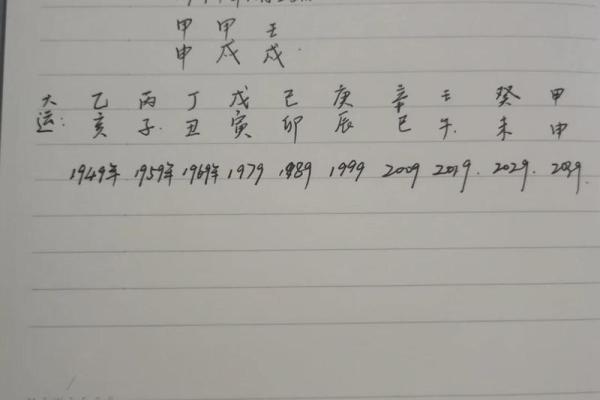 甲 甲 壬
申 戌 戌
大运: 乙 丙 丁 戊 己 庚 辛 壬 癸 甲
亥 子 丑 寅 卯 辰 巳 午 未 申
1949年 1959年 1969年 1979 1989 1999 2009 2019. 2029. 2039.